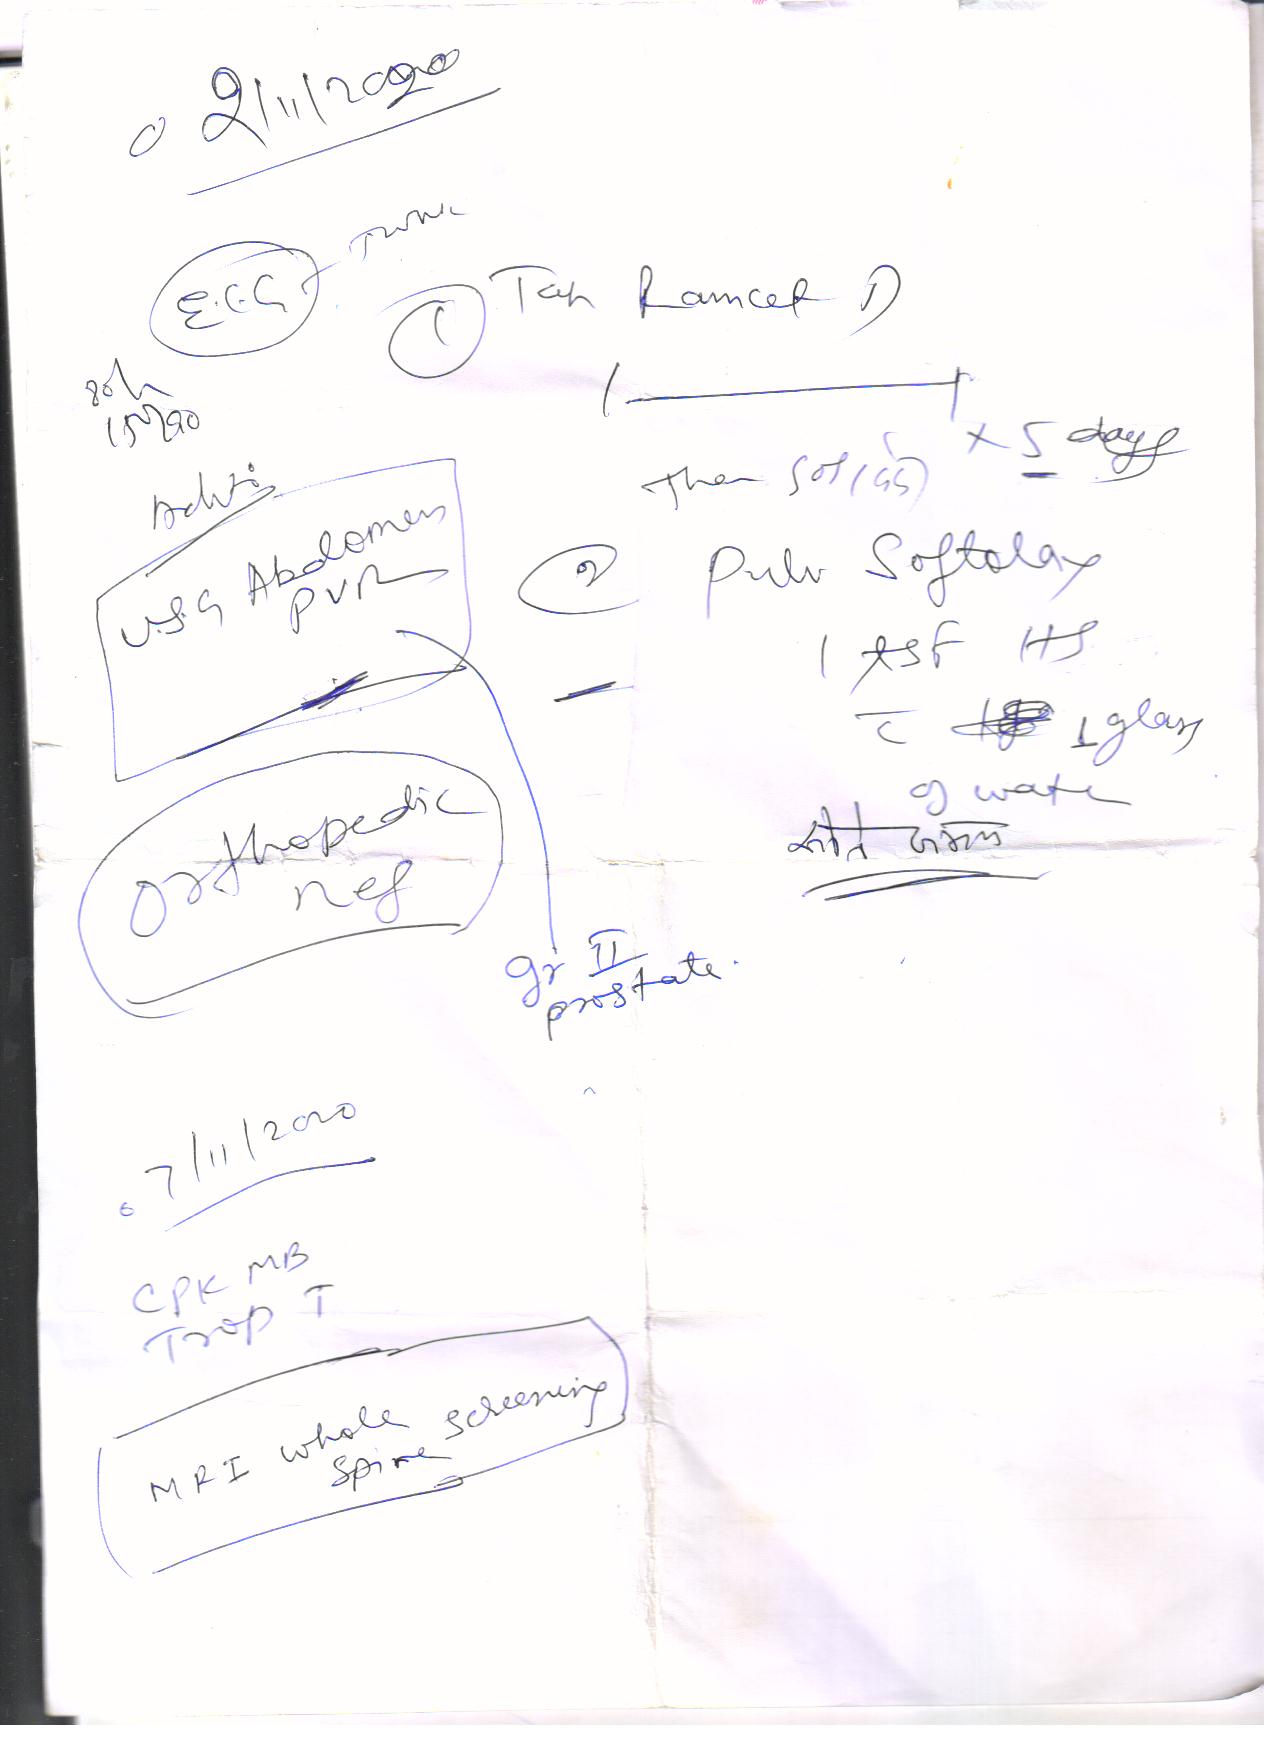 2/11/2020
E.C.G
① Tab Ramcet D
x 5 days
then SOS
Adv:
U.S.G Abdomen
PVR
② Pulv Softolax
1 tsf HS
c̄ 1 glass
of water
Orthopedic
Ref
gr II
prostate.
7/11/2020
CPK MB
Trop T
MRI whole screening
spine